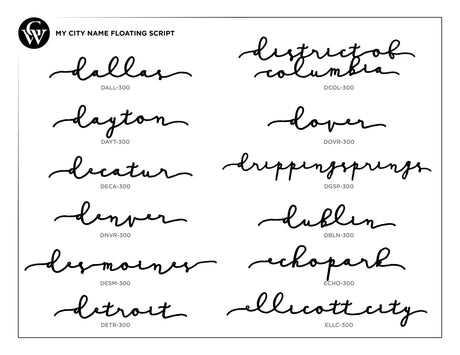 CW
MY CITY NAME FLOATING SCRIPT
dallas
DALL-300
dayton
DAYT-300
decatur
DECA-300
denver
DNVR-300
des moines
DESM-300
detroit
DETR-300
district of
columbia
DCOL-300
dover
DOVR-300
drippingsprings
DGSP-300
dublin
DBLN-300
echopark
ECHO-300
ellicott city
ELLC-300